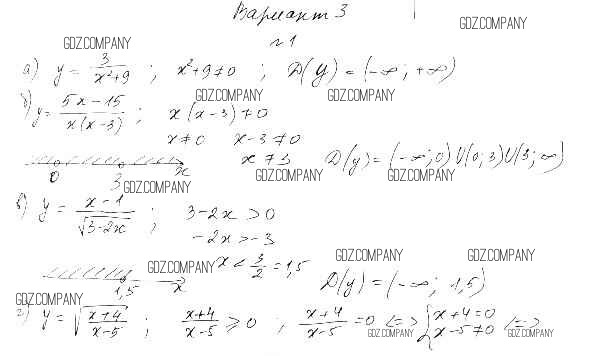 Вариант 3
GDZ.COMPANY
GDZ.COMPANY
№1
а) y = 3/(x²+9) ; x²+9≠0 ; D(y) = (-∞; +∞)
GDZ.COMPANY GDZ.COMPANY
б) y = (5x-15)/(x(x-3)) ; x(x-3)≠0
x≠0 x-3≠0
x≠3 D(y) = (-∞;0)U(0;3)U(3;∞)
0 3 x
GDZ.COMPANY GDZ.COMPANY GDZ.COMPANY
в) y = (x-1)/√(3-2x) ; 3-2x>0
-2x>-3
GDZ.COMPANY GDZ.COMPANY GDZ.COMPANY
x < 3/2 = 1,5
1,5 x D(y) = (-∞; 1,5)
GDZ.COMPANY
г) y = √((x+4)/(x-5)) ; (x+4)/(x-5) ≥ 0 ; (x+4)/(x-5) = 0 <=> { x+4=0 x-5≠0 <=>
GDZ.COMPANY GDZ.COMPANY